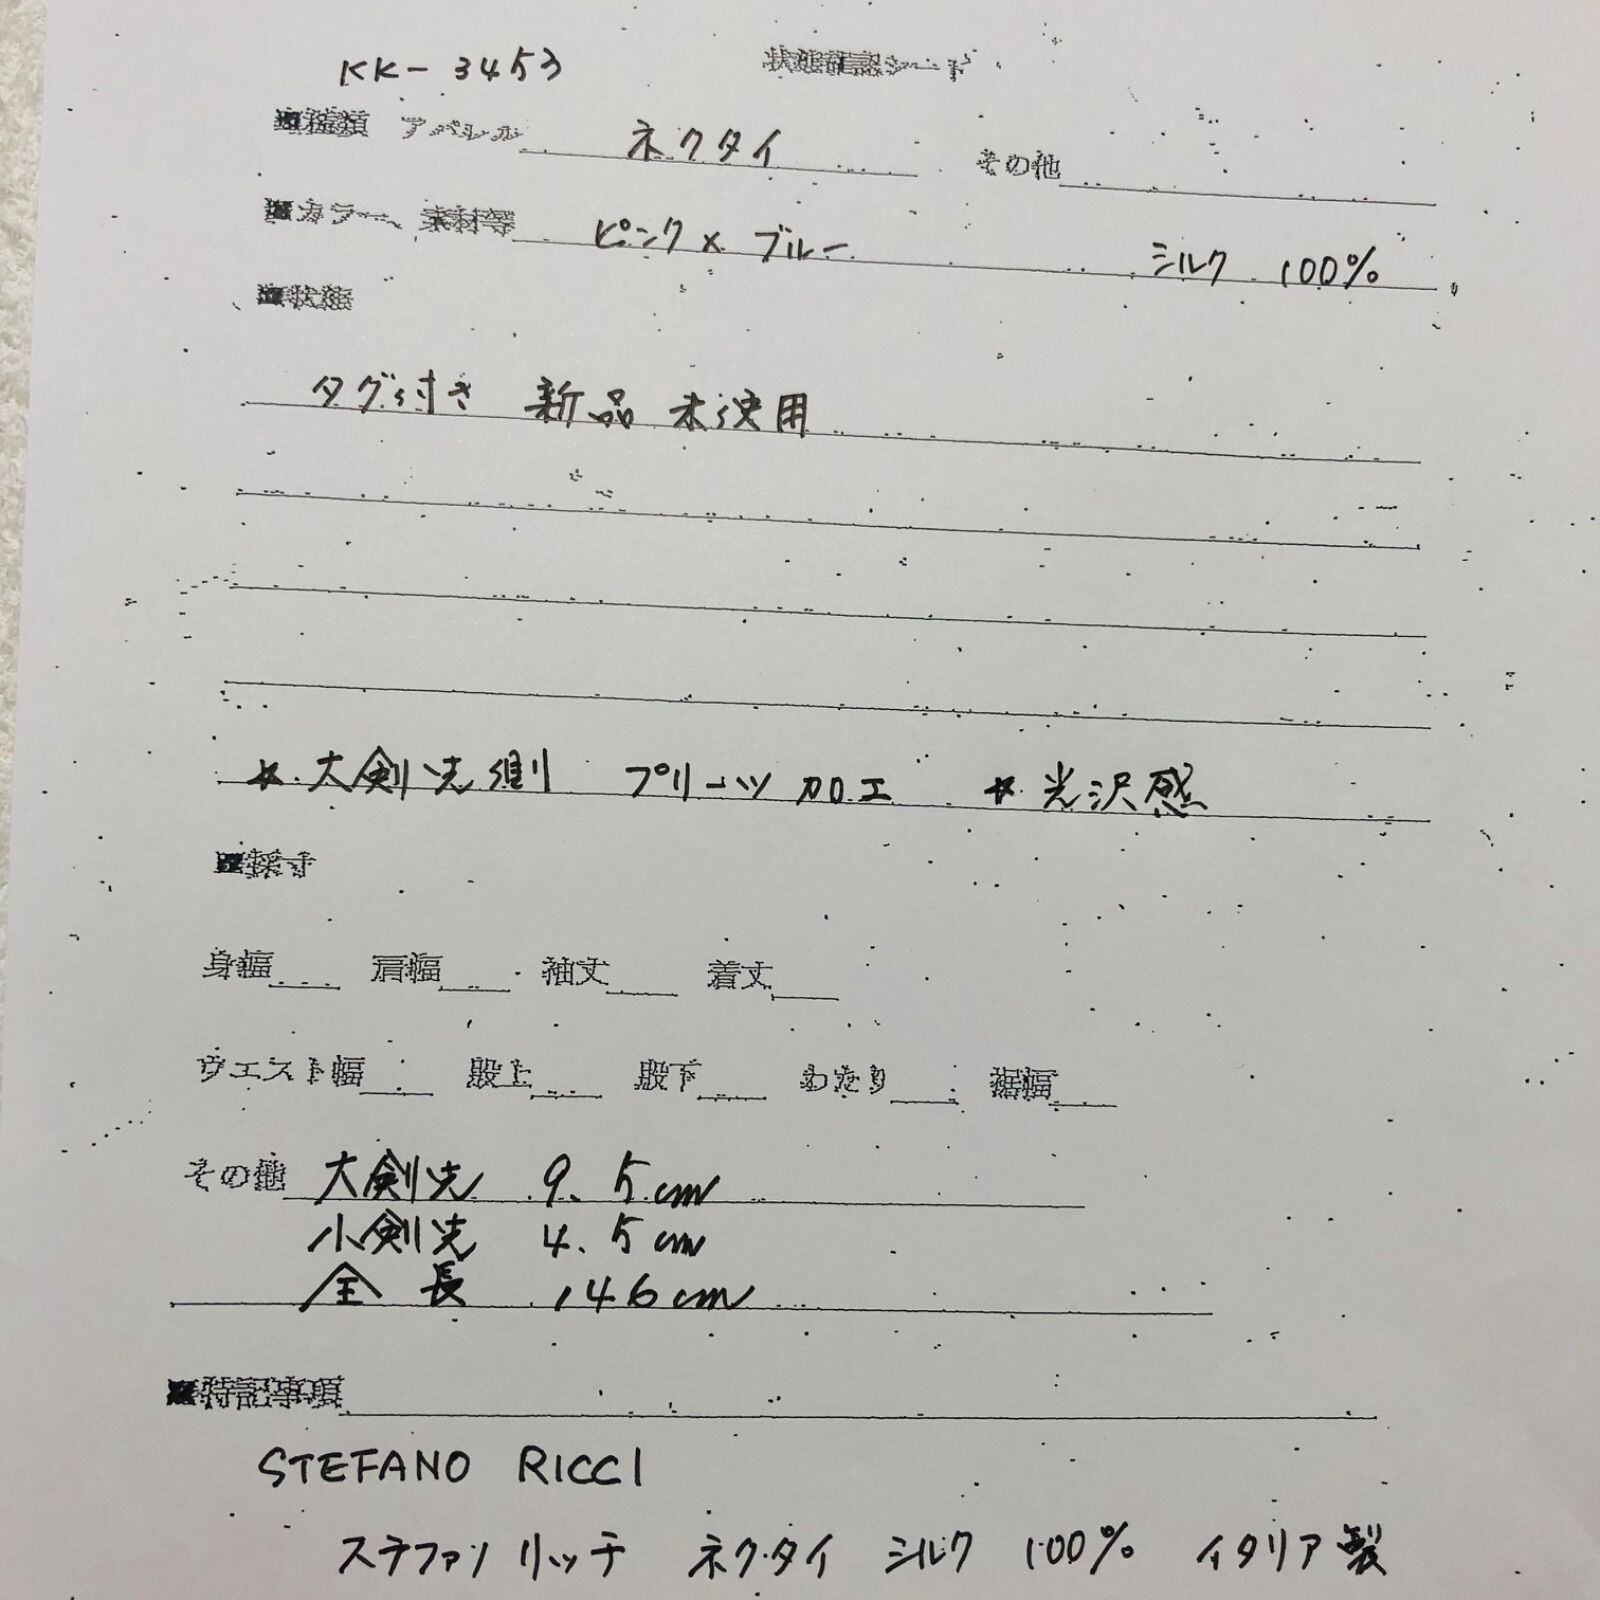 KK-3453 状態確認シート
■種類 アパレル ネクタイ その他
■カラー、素材等 ピンク×ブルー シルク 100%
■状態
タグ付き 新品 未使用
☆.大剣先側 プリーツ加工 ☆.光沢感
■採寸
身幅 肩幅 袖丈 着丈
ウエスト幅 股上 股下 わたり 裾幅
その他 大剣先 9.5cm
小剣先 4.5cm
全長 146cm
■特記事項
STEFANO RICCI
ステファノリッチ ネクタイ シルク 100% イタリア製